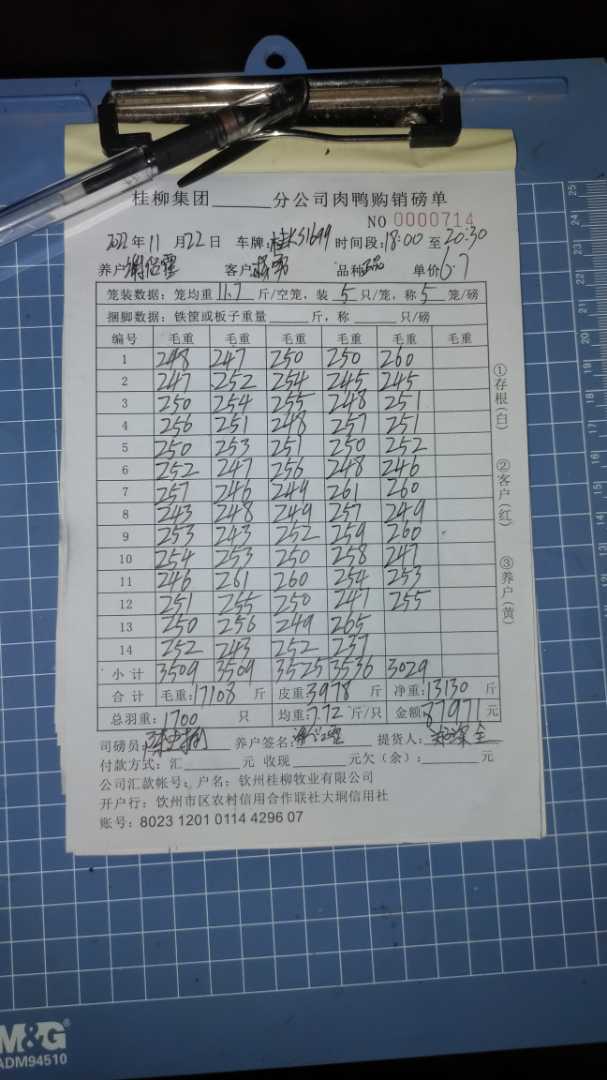 桂柳集团______分公司肉鸭购销磅单
NO 0000714
2022年11月22日 车牌:桂KS1699 时间段:18:00至20:30
养户 客户 品种 单价6.7
笼装数据:笼均重11.7斤/空笼,装5只/笼,称5笼/磅
捆脚数据:铁筐或板子重量______斤,称______只/磅
编号 毛重 毛重 毛重 毛重 毛重 毛重
1 248 247 250 250 260
2 247 252 254 245 245
3 250 254 255 248 251
4 256 251 248 257 251
5 250 253 251 250 252
6 252 247 256 248 246
7 257 246 249 261 260
8 243 248 249 257 249
9 253 243 252 259 260
10 254 253 250 258 247
11 246 261 260 254 253
12 251 255 250 247 255
13 250 256 249 265
14 252 243 252 237
小计 3509 3509 3525 3536 3029
合计 毛重:17108斤 皮重:3978斤 净重:13130斤
总羽重:1700只 均重:7.72斤/只 金额:87971元
司磅员: 养户签名: 提货人:
付款方式:汇______元 收现______元欠(余):______元
公司汇款帐号:户名:钦州桂柳牧业有限公司
开户行:钦州市区农村信用合作联社大垌信用社
账号:8023 1201 0114 4296 07
①存根(白)
②客户(红)
③养户(黄)
25
22
21
20
19
18
17
16
15
14
M&G
ADM94510